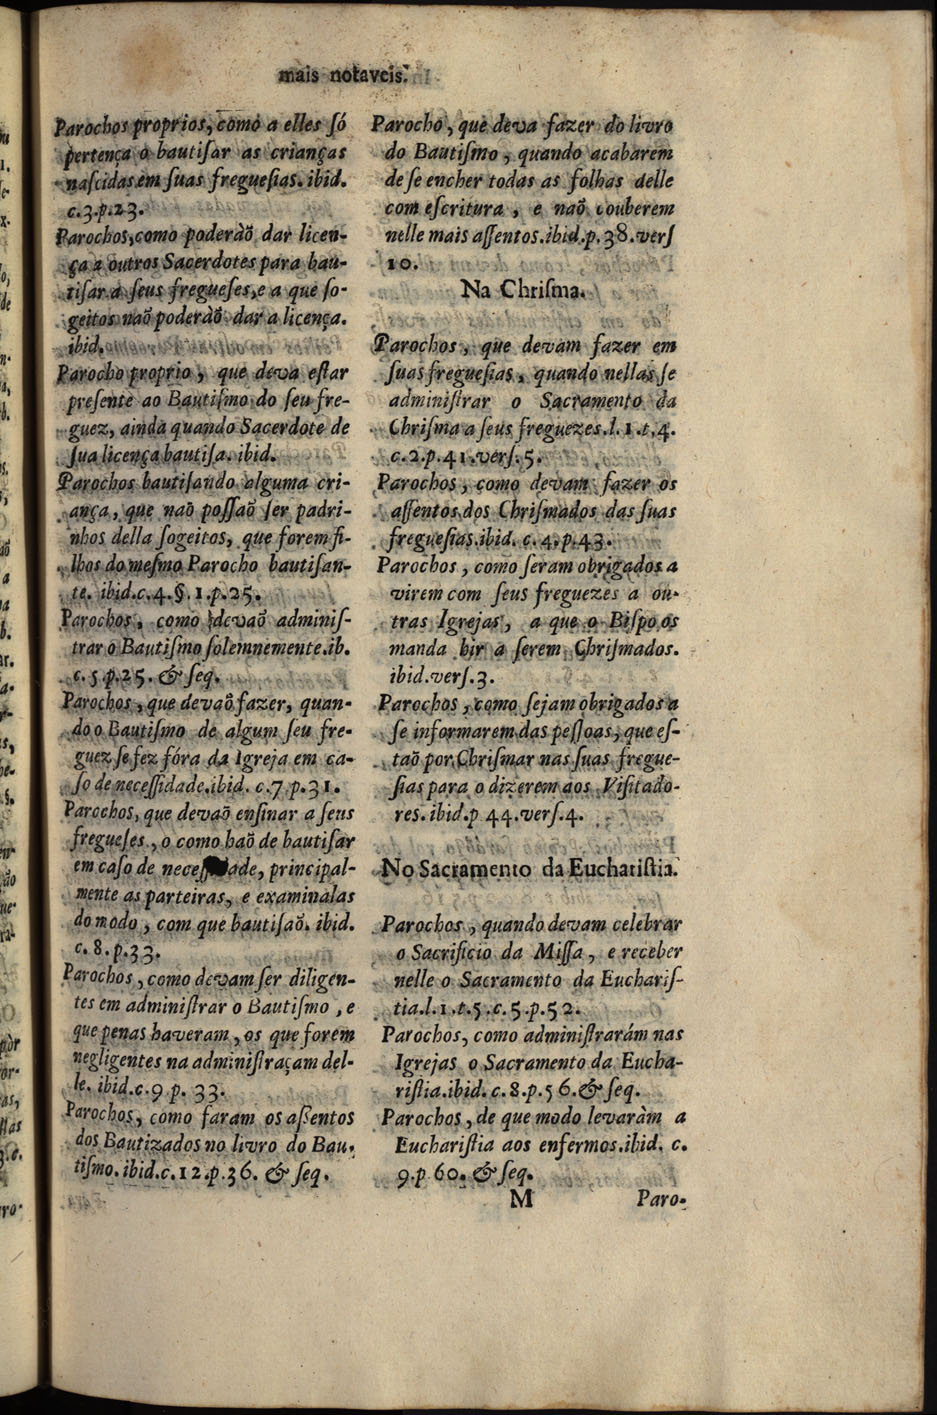 mais notaveis.
Parochos proprios, como a elles só
pertença o bautiſar as crianças
naſcidas em ſuas freguesias. ibid.
c.3.p.23.
Parochos, como poderàõ dar licen-
ça a outros Sacerdotes para bau-
tiſar a ſeus freguesſes, e a que ſo-
geitos naõ poderàõ dar a licença.
ibid.
Parocho proprio, que deva eſtar
preſente ao Bautiſmo do ſeu fre-
guez, ainda quando Sacerdote de
ſua licença bautiſa. ibid.
Parochos bautiſando alguma cri-
ança, que naõ poſſaõ ſer padri-
nhos della ſogeitos, que forem fi-
lhos do meſmo Parocho bautiſan-
te. ibid.c.4.§.1.p.25.
Parochos, como devaõ adminiſ-
trar o Bautiſmo ſolemnemente.ib.
c.5.p.25. & ſeq.
Parochos, que devaõ fazer, quan-
do o Bautiſmo de algum ſeu fre-
guez ſe fez fóra da Igreja em ca-
ſo de neceſſidade.ibid. c.7.p.31.
Parochos, que devaõ enſinar a ſeus
fregueſes, o como haõ de bautiſar
em caſo de neceſſ ade, principal-
mente as parteiras, e examinalas
do modo, com que bautiſaõ. ibid.
c.8.p.33.
Parochos, como devam ſer diligen-
tes em adminiſtrar o Bautiſmo, e
que penas haveram, os que forem
negligentes na adminiſtraçam del-
le. ibid.c.9 p. 33.
Parochos, como faram os aſſentos
dos Bautizados no livro do Bau-
tiſmo. ibid.c.12.p.36. & ſeq.
Parocho, que deva fazer do livro
do Bautiſmo, quando acabarem
de ſe encher todas as folhas delle
com eſcritura, e naõ couberem
nelle mais aſſentos.ibid.p.38.verſ
10.
Na Chriſma.
Parochos, que devam fazer em
ſuas fregueſias, quando nellas ſe
adminiſtrar o Sacramento da
Chriſma a ſeus freguezes.l.1.t.4.
c.2.p.41.verſ.5.
Parochos, como devam fazer os
aſſentos dos Chriſmados das ſuas
fregueſias.ibid. c.4.p.43.
Parochos, como ſeram obrigados a
virem com ſeus freguezes a ou-
tras Igrejas, a que o Biſpo os
manda hir a ſerem Chriſmados.
ibid.verſ.3.
Parochos, como ſejam obrigados a
ſe informarem das peſſoas, que eſ-
taõ por Chriſmar nas ſuas fregue-
ſias para o dizerem aos Viſitado-
res. ibid.p 44.verſ.4.
No Sacramento da Euchariſtia.
Parochos, quando devam celebrar
o Sacrificio da Miſſa, e receber
nelle o Sacramento da Euchariſ-
tia.l.1.t.5.c.5.p.52.
Parochos, como adminiſtrarám nas
Igrejas o Sacramento da Eucha-
riſtia.ibid. c.8.p.56.& ſeq.
Parochos, de que modo levaràm a
Euchariſtia aos enfermos.ibid. c.
9.p 60. & ſeq.
M Paro-